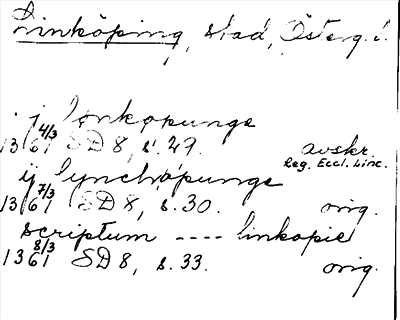 Linköping, stad, Österg. l.
j lønkøpunge
1361 4/3 SD 8, s. 29. avskr.
Reg. Eccl. Linc.
ij lynchøpunge
1361 7/3 SD 8, s. 30. orig.
scriptum ---- linkopie
1361 8/3 SD 8, s. 33. orig.